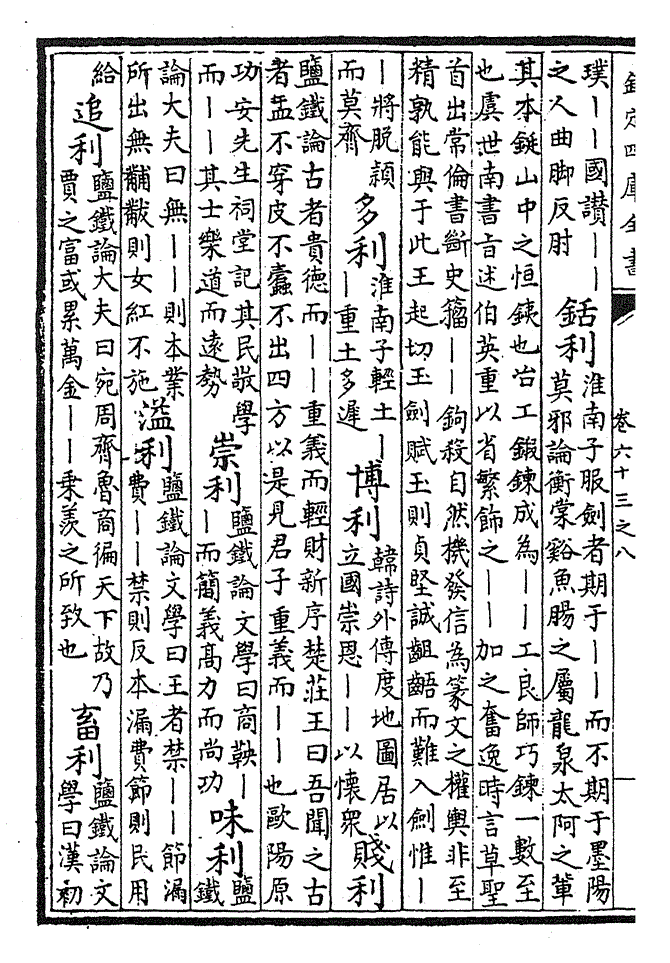 欽定四庫全書
卷六十三之八
璞丨丨國讃丨丨
之人曲脚反肘
銛利
淮南子服劍者期于丨丨而不期于墨陽
莫邪論衡棠谿魚腸之屬龍泉太阿之輩
其本鋌山中之恒鐵也冶工鍜鍊成為丨丨工良師巧鍊一數至
也虞世南書旨述伯英重以省繁飾之丨丨加之奮逸時言草聖
首出常倫書斷史籕丨丨鉤殺自然機發信為篆文之權輿非至
精孰能與于此王起切玉劍賦玉則貞堅誠齟齬而難入劍惟丨
丨將脱頴
而莫齊
多利
淮南子輕土丨
丨重土多遲
博利
韓詩外傳度地圖居以
立國崇恩丨丨以懷衆
賤利
鹽鐵論古者貴德而丨丨重義而輕財新序楚莊王曰吾聞之古
者盂不穿皮不蠧不出四方以是見君子重義而丨丨也歐陽原
功安先生祠堂記其民敬學
而丨丨其士樂道而遠勢
崇利
鹽鐵論文學曰商鞅丨
丨而簡義高力而尚功
味利
鹽
鐵
論大夫曰無丨丨則本業
所出無黼黻則女紅不施
溢利
鹽鐵論文學曰王者禁丨丨節漏
費丨丨禁則反本漏費節則民用
給
追利
鹽鐵論大夫曰宛周齊魯商徧天下故乃
賈之富或累萬金丨丨乗羡之所致也
畜利
鹽鐵論文
學曰漢初